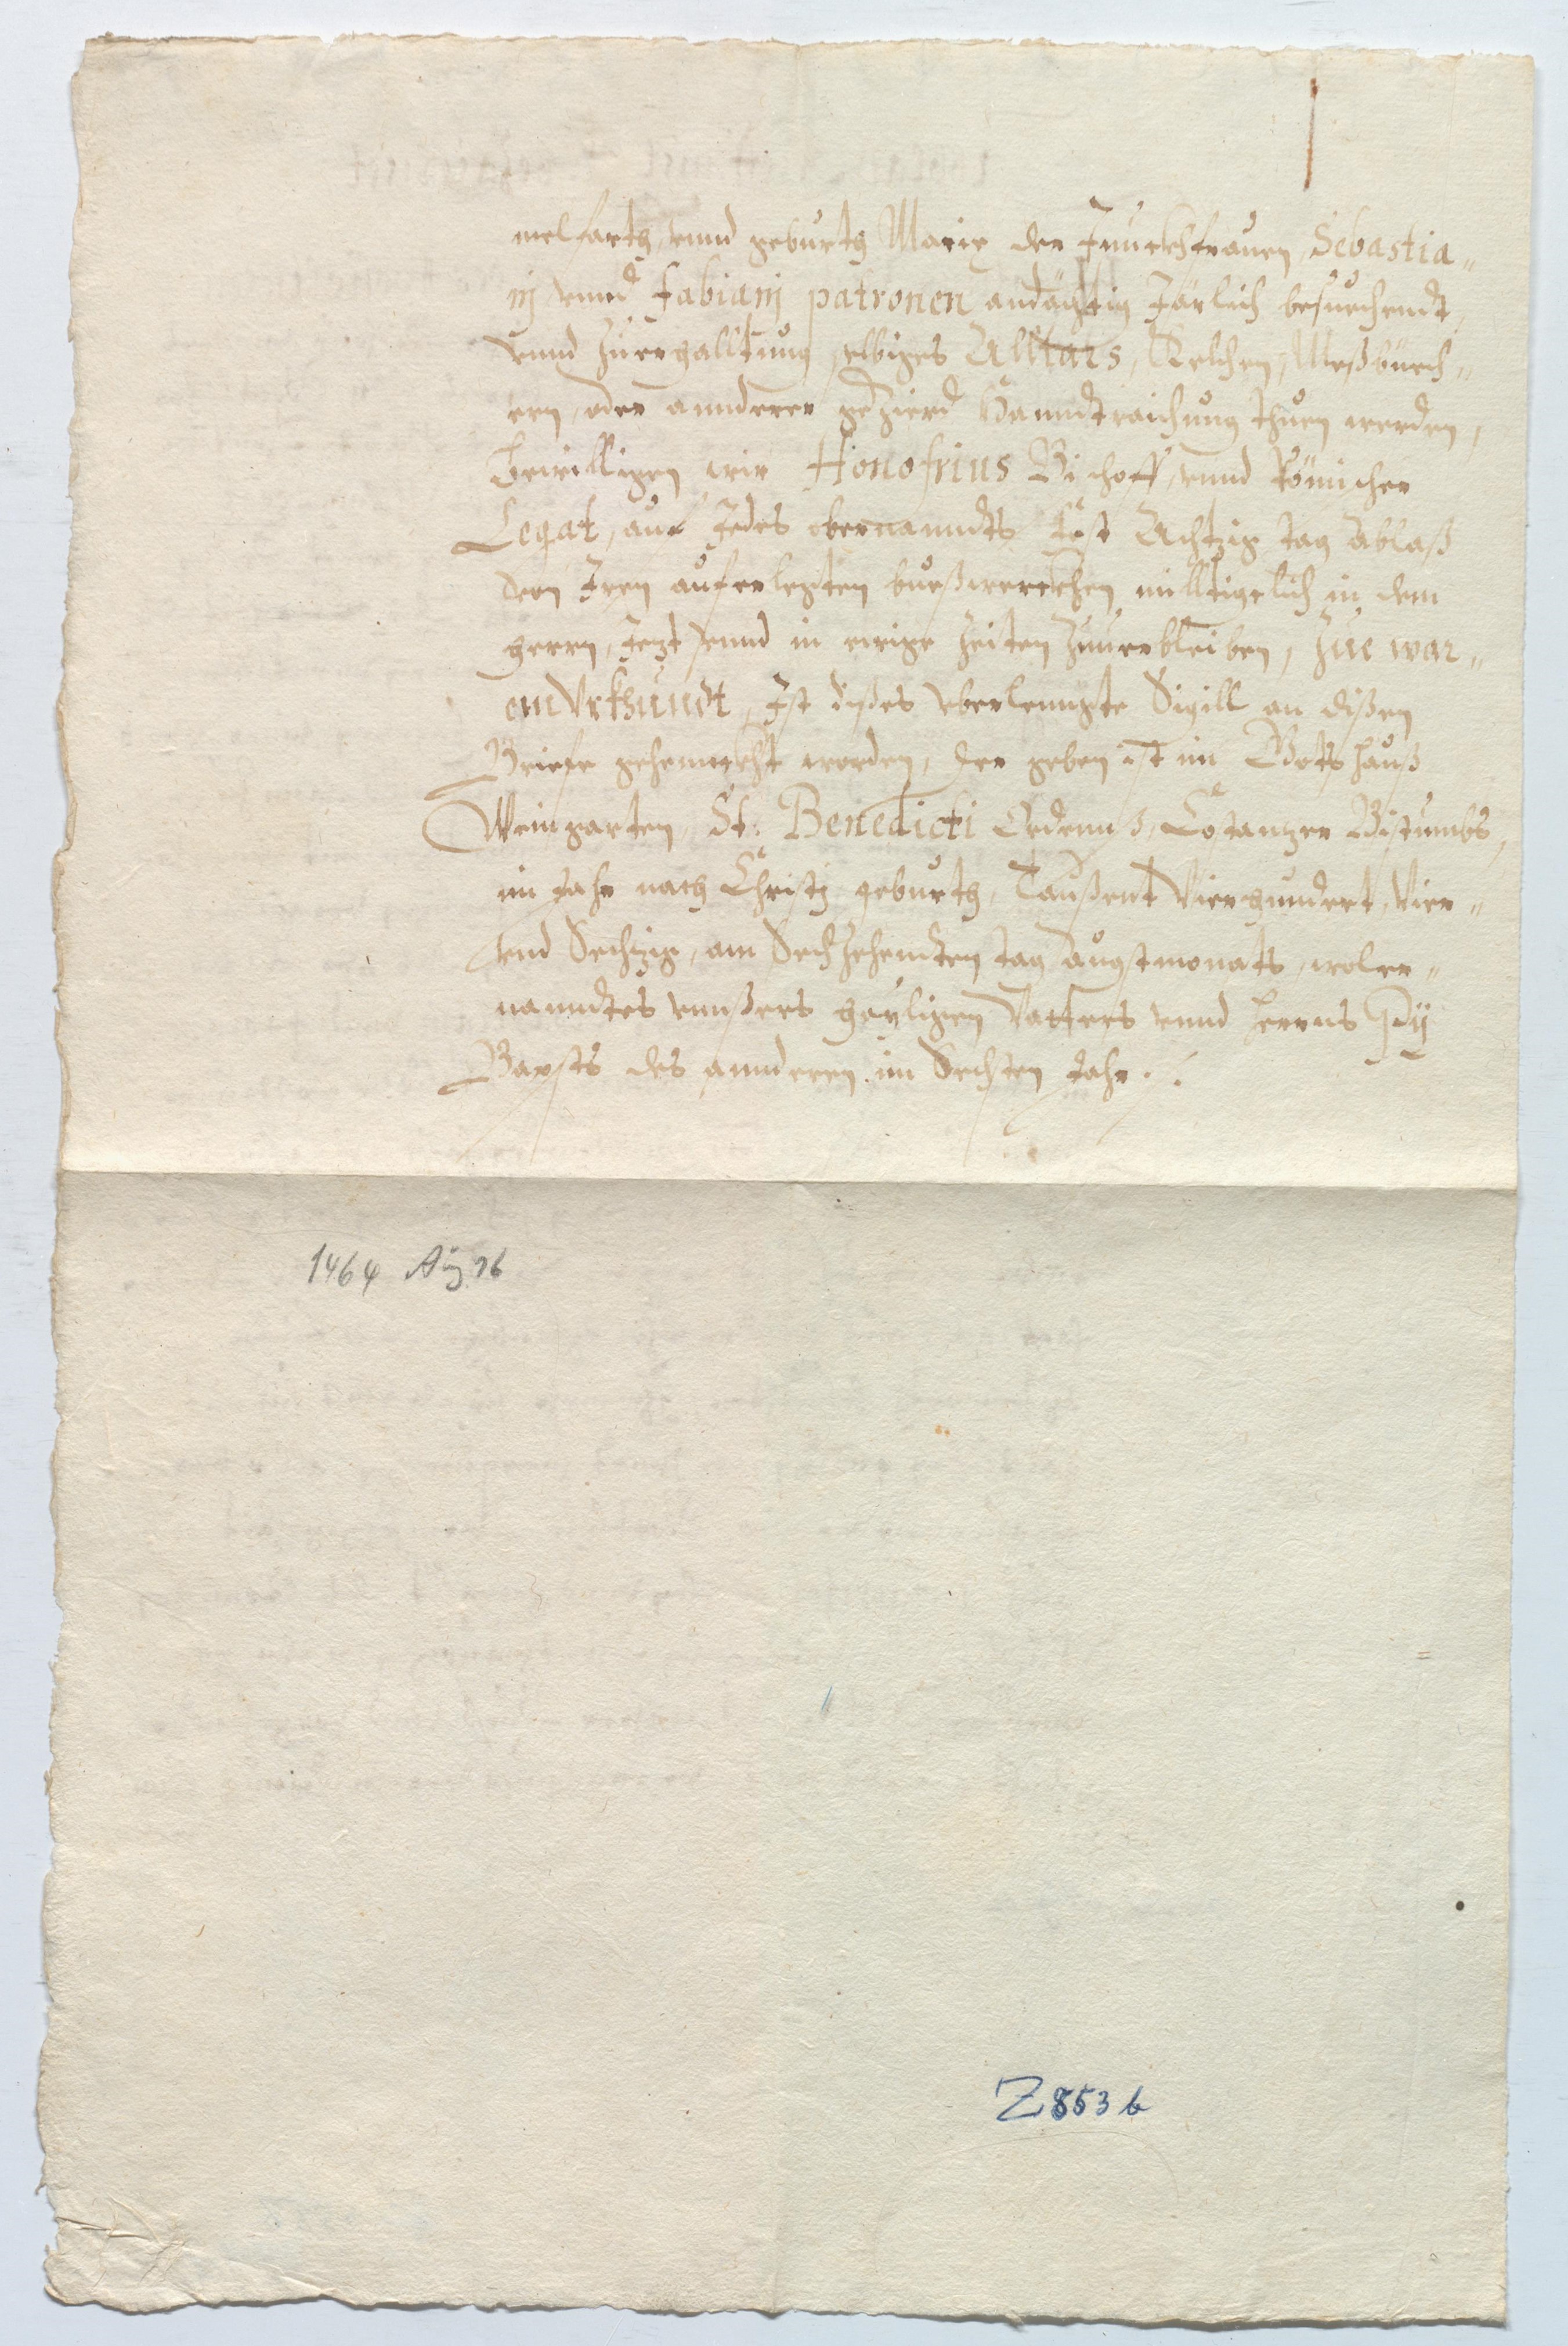 melfarth, vnnd geburth Mariæ der Junckhfrauen, Sebastia„
nj vnnd Fabianj patronen andächtig Järlich besuechendt,
vnnd zu erhalltung selbiges Alltars, Kelchen, Meßbüech„
ern, oder annderer gezierd Hanndtraichung thuen werden,
Bewilligen wir Honofrius Bischoff, vnnd Römischer
Legat, auf Jedes obernanndts Fest Achtzig tag Ablaß
den Jren auferlegten bueßwerckhen milltigclich in dem
herrn, Jezt vnnd in ewige Zeiten Zuuerbleiben, Zue war„
em Vrkhundt, Jst dißes vberlenngte Sigill an dißen
Briefe gehennckht worden, der geben ist im Gottshauß
Weingarten, St: Benedicti Ordenns, Costantzer Bistumbs,
im Jahr nach Christj geburth, Taußent Vierhundert, Vier„
vnd Sechzig, am Sechzehendten tag Augstmonats, woler„
nanndtes vnnßers heyligen Vatters vnnd herrns Pij
Bapsts des annderen im Sechsten Jahr ./.
1464 Aug 16
Z 853 b